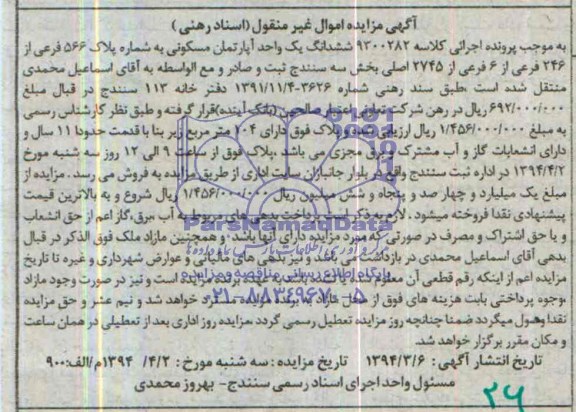 آگهی مزایده اموال غیر منقول (اسناد رهنی)
به موجب پرونده اجرائی کلاسه ۹۲۰۰۲۸۲ ششدانگ یک واحد آپارتمان مسکونی به شماره پلاک ۵۶۶ فرعی از
۲۴۶ فرعی از ۶ فرعی از ۲۷۴۵ اصلی بخش سه سنندج ثبت و صادر و مع الواسطه به آقای اسماعیل محمدی
منتقل شده است ،طبق سند رهنی شماره ۳۶۲۶-۱۳۹۱/۱۱/۴ دفتر خانه ۱۱۳ سنندج در قبال مبلغ
۶۹۲/۰۰۰/۰۰۰ ریال در رهن شرکت تعاونی اعتبار صالحین (بانک آینده)قرار گرفته و طبق نظر کارشناس رسمی
به مبلغ ۱/۴۵۶/۰۰۰/۰۰۰ ریال ارزیابی شده و پلاک فوق دارای ۱۰۴ متر مربع زیر بنا با قدمت حدودا ۱۱ سال و
دارای انشعابات گاز و آب مشترک و برق مجزی می باشد ،پلاک فوق از ساعت ۹ الی ۱۲ روز سه شنبه مورخ
۱۳۹۴/۴/۲ در اداره ثبت سنندج واقع در بلوار جانبازان سایت اداری از طریق مزایده به فروش می رسد . مزایده از
مبلغ یک میلیارد و چهار صد و پنجاه و شش میلیون ریال ۱/۴۵۶/۰۰۰/۰۰۰ ریال شروع و به بالاترین قیمت
پیشنهادی نقدا فروخته میشود . لازم به ذکر است پرداخت بدهی های مربوط به آب ،برق،گاز اعم از حق انشعاب
و یا حق اشتراک و مصرف در صورتی که مورد مزایده دارای آنها باشد ، و همچنین مازاد ملک فوق الذکر در قبال
بدهی آقای اسماعیل محمدی در بازداشت می باشد و نیز بدهی های مالیاتی و عوارض شهرداری و غیره تا تاریخ
مزایده اعم از اینکه رقم قطعی آن معلوم شده یا نشده باشد به عهده برنده مزایده است و نیز در صورت وجود مازاد
،وجوه پرداختی بابت هزینه های فوق از محل مازاد به برنده مزایده مسترد خواهد شد و نیم عشر و حق مزایده
نقدا وصول میگردد ضمنا چنانچه روز مزایده تعطیل رسمی گردد ،مزایده روز اداری بعد از تعطیلی در همان ساعت
و مکان مقرر برگزار خواهد شد.
تاریخ انتشار آگهی : ۱۳۹۴/۳/۶ تاریخ مزایده : سه شنبه مورخ : ۱۳۹۴ /۴/۲م/الف:۹۰۰
مسئول واحد اجرای اسناد رسمی سنندج- بهروز محمدی
۲۶
ParsNamadData
پایگاه اطلاع رسانی مناقصه و مزایده
۰۲۱-۸۸۳۴۹۶۷۰-۵